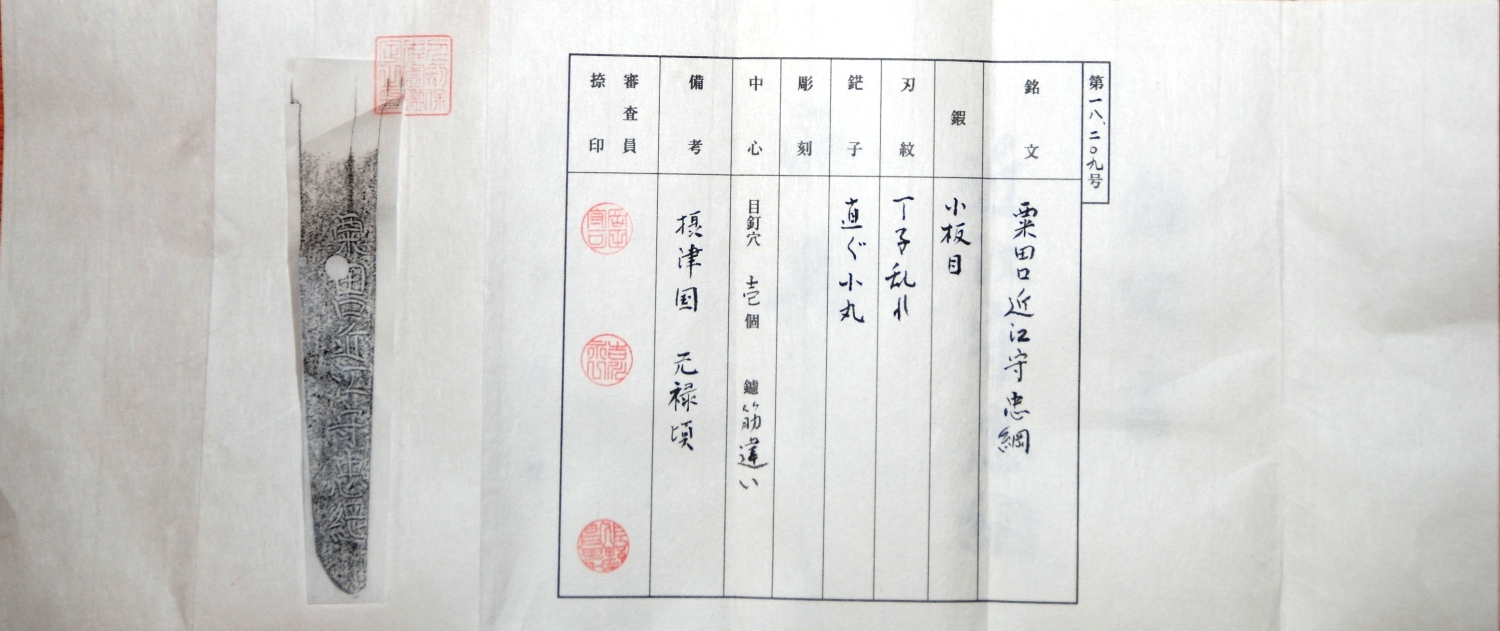 第一八、二〇九号
銘文
粟田口近江守忠綱
鍜
小板目
刃紋
丁子乱れ
鋩子
直ぐ小丸
彫刻
中心
目釘穴 壱個 鑢 筋違い
備考
摂津国 元禄頃
審査員
捺印
粟田口近江守忠綱